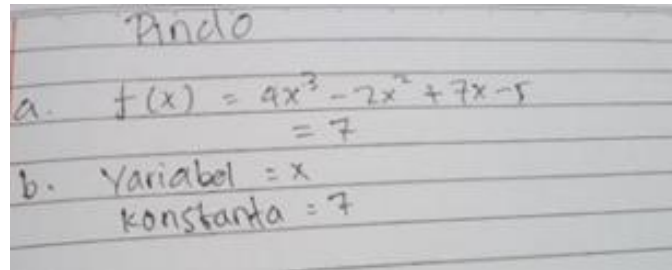 Pindo
a. f(x) = 4x³ - 2x² + 7x - 5
= 7
b. Variabel = x
Konstanta = 7